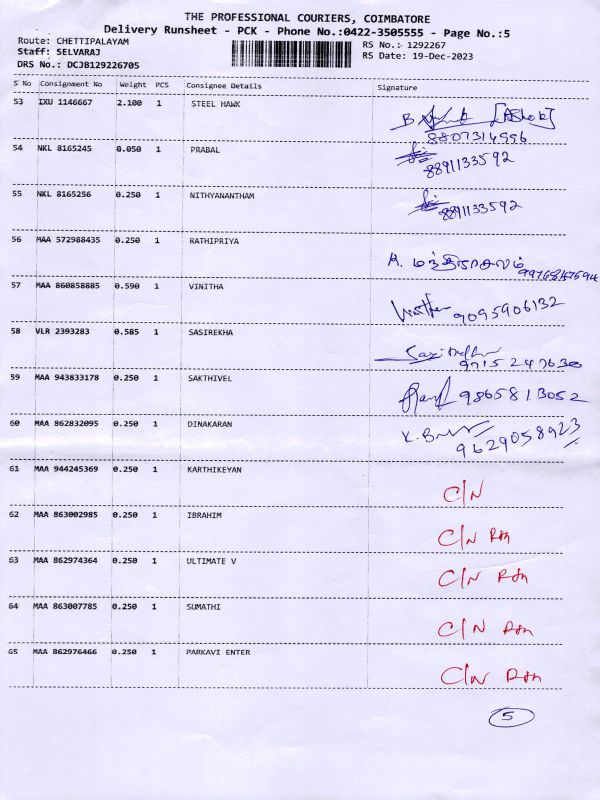 THE PROFESSIONAL COURIERS, COIMBATORE
Delivery Runsheet - PCK - Phone No.:0422-3505555 - Page No.:5
Route: CHETTIPALAYAM RS No.: 1292267
Staff: SELVARAJ RS Date: 19-Dec-2023
DRS No.: DCJB129226705
S No Consignment No Weight PCS Consignee Details Signature
53 IXU 1146667 2.100 1 STEEL HAWK
B [Ashok]
8807314556
54 NKL 8165245 0.050 1 PRABAL
8891133592
55 NKL 8165256 0.250 1 NITHYANANTHAM
8891133592
56 MAA 572988435 0.250 1 RATHIPRIYA
57 MAA 860858885 0.590 1 VINITHA
9095906132
58 VLR 2393283 0.585 1 SASIREKHA
9715247630
59 MAA 943833178 0.250 1 SAKTHIVEL
9865813052
60 MAA 862832095 0.250 1 DINAKARAN
9629058923
61 MAA 944245369 0.250 1 KARTHIKEYAN
C/N
62 MAA 863002985 0.250 1 IBRAHIM
C/N
63 MAA 862974364 0.250 1 ULTIMATE V
C/N
64 MAA 863007785 0.250 1 SUMATHI
C/N
65 MAA 862976466 0.250 1 PARKAVI ENTER
C/N
5